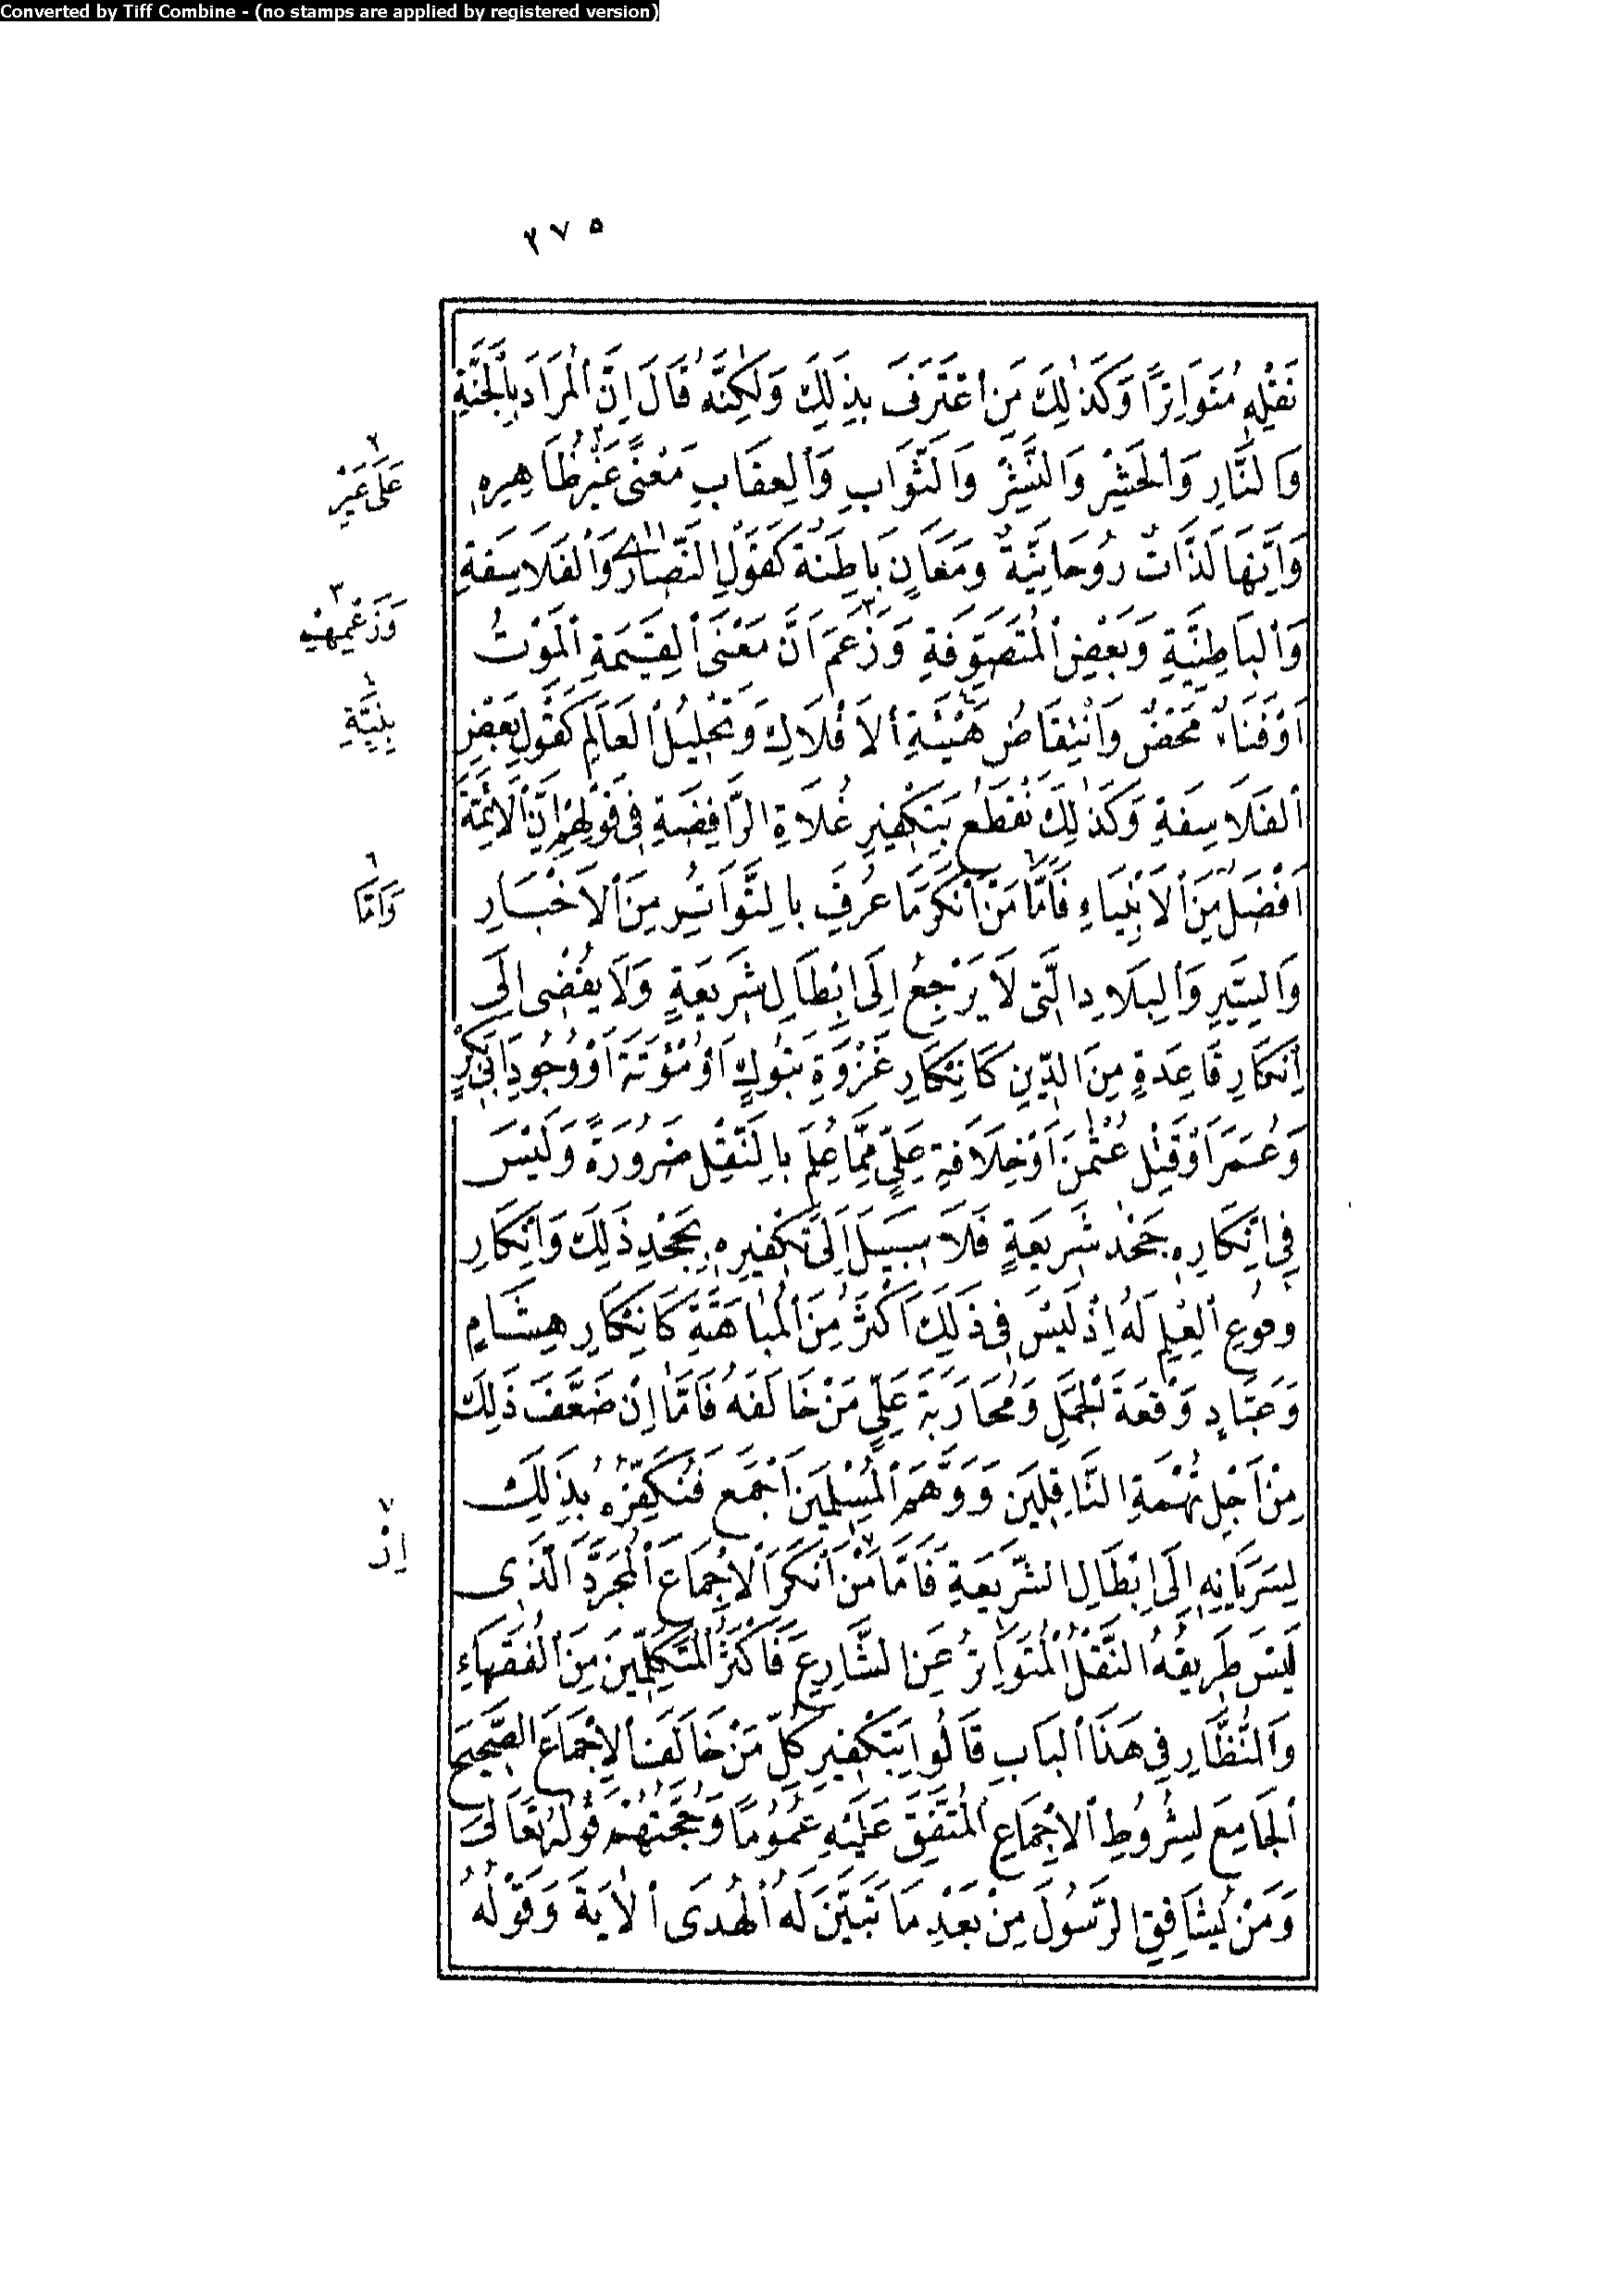 Converted by Tiff Combine - (no stamps are applied by registered version)
٢٧٥
نَقْلِهِ مُتَوَاتِرًا وَكَذٰلِكَ مَنِ ٱعْتَرَفَ بِذٰلِكَ وَلٰكِنَّهُ قَالَ اِنَّ ٱلْمُرَادَ بِٱلْجَنَّةِ
وَالنَّارِ وَٱلْحَشْرِ وَالنَّشْرِ وَالثَّوَابِ وَٱلْعِقَابِ مَعْنًى غَيْرُ ظَاهِرِهِ
وَاَنَّهَا لَذَّاتٌ رُوحَانِيَّةٌ وَمَعَانٍ بَاطِنَةٌ كَقَوْلِ النَّصَارٰى وَٱلْفَلَاسِفَةِ
وَٱلْبَاطِنِيَّةِ وَبَعْضِ ٱلْمُتَصَوِّفَةِ وَزَعَمَ اَنَّ مَعْنَى ٱلْقِيٰمَةِ ٱلْمَوْتُ
اَوْ فَنَاءٌ مَحْضٌ وَٱنْتِقَاضُ هَيْئَةِ ٱلْاَفْلَاكِ وَتَحْلِيلُ ٱلْعَالَمِ كَقَوْلِ بَعْضِ
ٱلْفَلَاسِفَةِ وَكَذٰلِكَ نَقْطَعُ بِتَكْفِيرِ غُلَاةِ الرَّافِضَةِ فِي قَوْلِهِمْ اِنَّ ٱلْاَئِمَّةَ
اَفْضَلُ مِنَ ٱلْاَنْبِيَاءِ فَاَمَّا مَنْ اَنْكَرَ مَا عُرِفَ بِالتَّوَاتُرِ مِنَ ٱلْاَخْبَارِ
وَالسِّيَرِ وَٱلْبِلَادِ الَّتِي لَا يَرْجِعُ اِلَى اِبْطَالِ شَرِيعَةٍ وَلَا يُفْضِى اِلَى
اِنْكَارِ قَاعِدَةٍ مِنَ الدِّينِ كَاِنْكَارِ غَزْوَةِ تَبُوكٍ اَوْ مُؤْتَةَ اَوْ وُجُودِ اَبِي بَكْرٍ
وَعُمَرَ اَوْ قَتْلِ عُثْمٰنَ اَوْ خِلَافَةِ عَلِيٍّ مِمَّا عُلِمَ بِالنَّقْلِ ضَرُورَةً وَلَيْسَ
فِي اِنْكَارِهِ جَحْدُ شَرِيعَةٍ فَلَا سَبِيلَ اِلَى تَكْفِيرِهِ بِجَحْدِ ذٰلِكَ وَاِنْكَارِ
وُقُوعِ ٱلْعِلْمِ لَهُ اِذْ لَيْسَ فِي ذٰلِكَ اَكْثَرُ مِنَ ٱلْمُبَاهَتَةِ كَاِنْكَارِ هِشَامٍ
وَعَبَّادٍ وَقْعَةَ ٱلْجَمَلِ وَمُحَارَبَةَ عَلِيٍّ مَنْ خَالَفَهُ فَاَمَّا اِنْ ضَعَّفَ ذٰلِكَ
مِنْ اَجْلِ تُهْمَةِ النَّاقِلِينَ وَوَهَّمَ ٱلْمُسْلِمِينَ اَجْمَعَ فَنُكَفِّرُهُ بِذٰلِكَ
لِسَرَيَانِهِ اِلَى اِبْطَالِ الشَّرِيعَةِ فَاَمَّا مَنْ اَنْكَرَ ٱلْاِجْمَاعَ ٱلْمُجَرَّدَ ٱلَّذِى
لَيْسَ طَرِيقُهُ النَّقْلُ ٱلْمُتَوَاتِرُ عَنِ الشَّارِعِ فَاَكْثَرُ ٱلْمُتَكَلِّمِينَ مِنَ ٱلْفُقَهَاءِ
وَالنُّظَّارِ فِي هٰذَا ٱلْبَابِ قَالُوا بِتَكْفِيرِ كُلِّ مَنْ خَالَفَ ٱلْاِجْمَاعَ الصَّحِيحَ
ٱلْجَامِعَ لِشُرُوطِ ٱلْاِجْمَاعِ ٱلْمُتَّفَقَ عَلَيْهِ عُمُومًا وَحُجَّتُهُمْ قَوْلُهُ تَعَالٰى
وَمَنْ يُشَاقِقِ الرَّسُولَ مِنْ بَعْدِ مَا تَبَيَّنَ لَهُ ٱلْهُدٰى ٱلْاٰيَةَ وَقَوْلُهُ
٢ عَلَى غَيْرِ
٣ وَزَعْمِهِمْ
بِنْيَةِ
٦ وَاَمَّا
٧ اِذْ